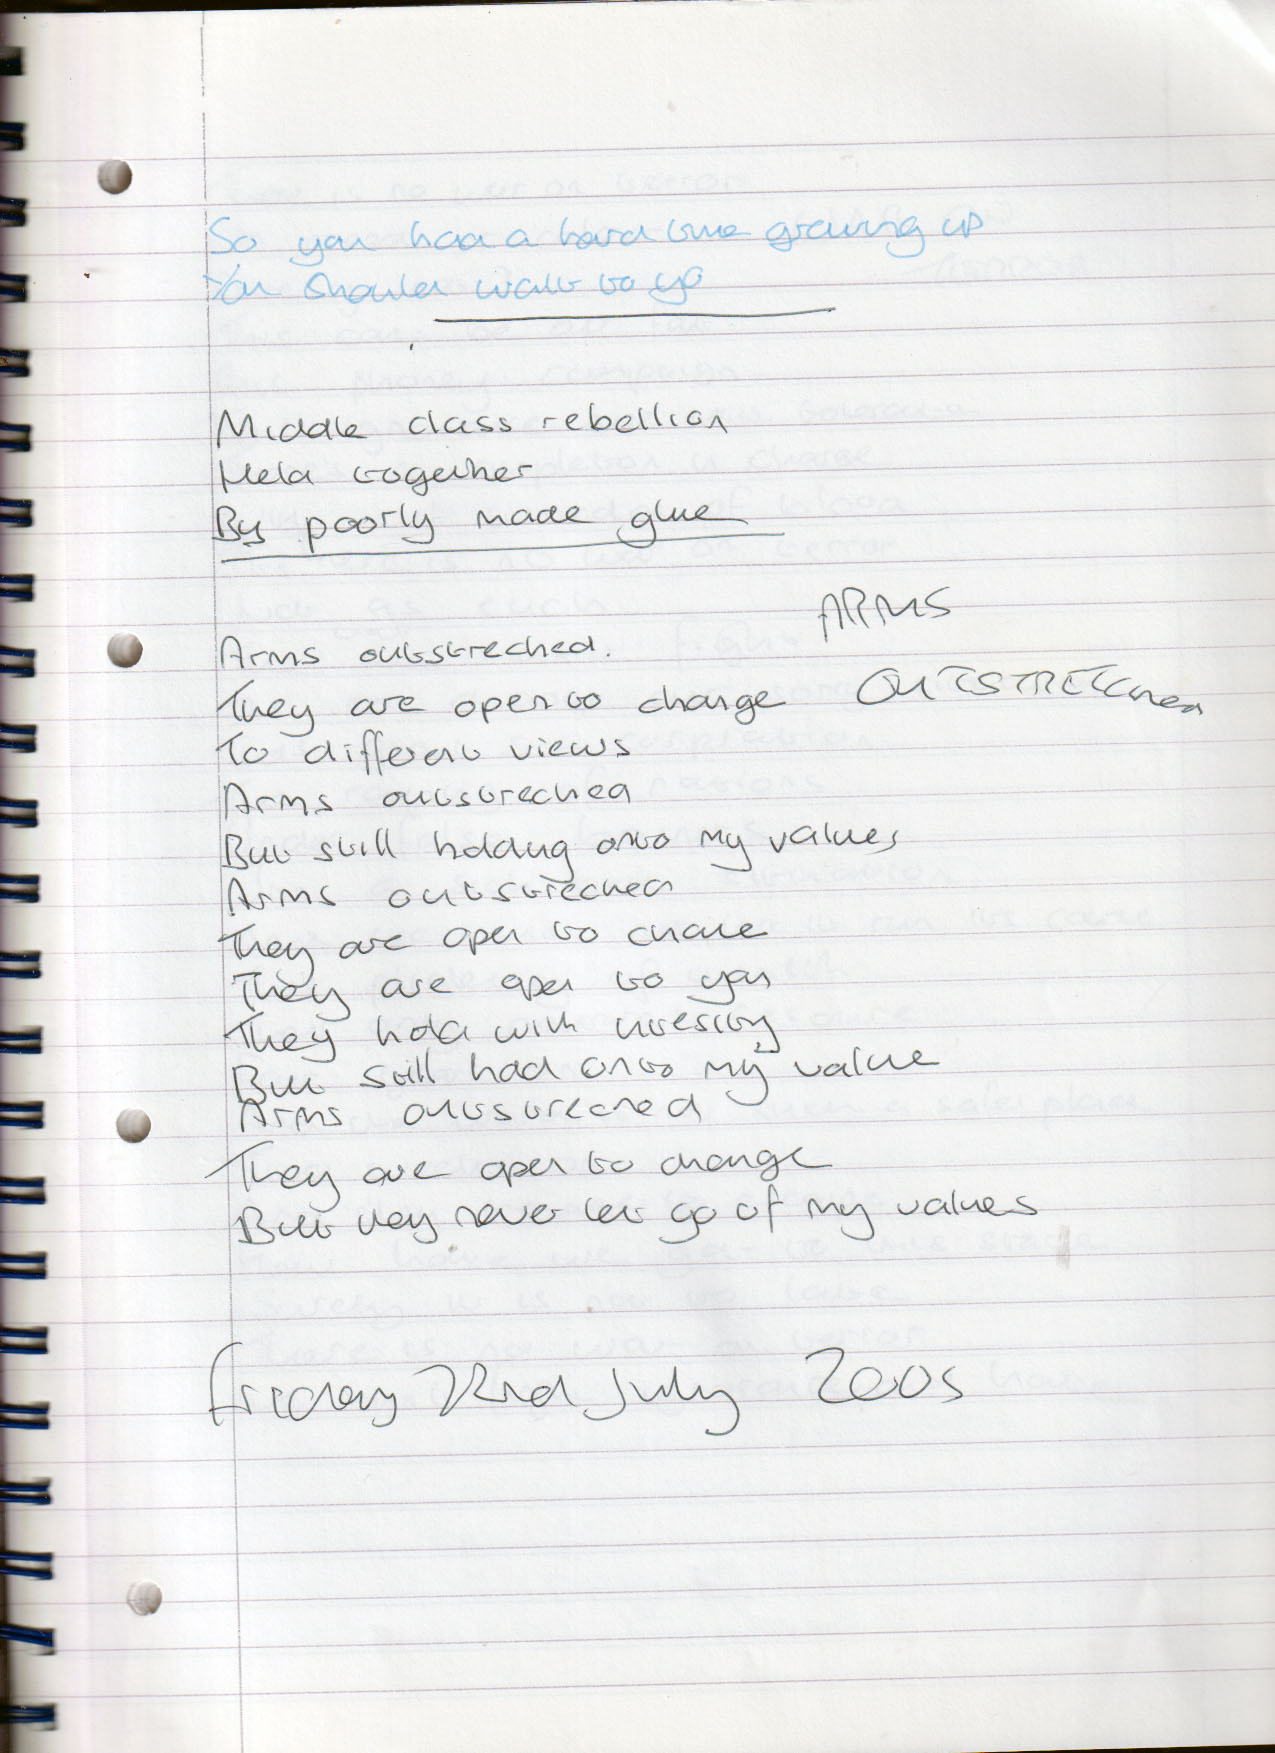 So you had a hard time growing up
You should walk to yo
Middle class rebellion
Held together
By poorly made glue
ARMS
OUTSTRETChed
Arms outstreched.
They are open to change
To different views
Arms outstreched
But still holding onto my values
Arms outstreched
They are open to
They are open to you
They hold with
But still hold onto my value
Arms outstreched
They are open to change
But they never let go of my values
Friday 22nd July 2005